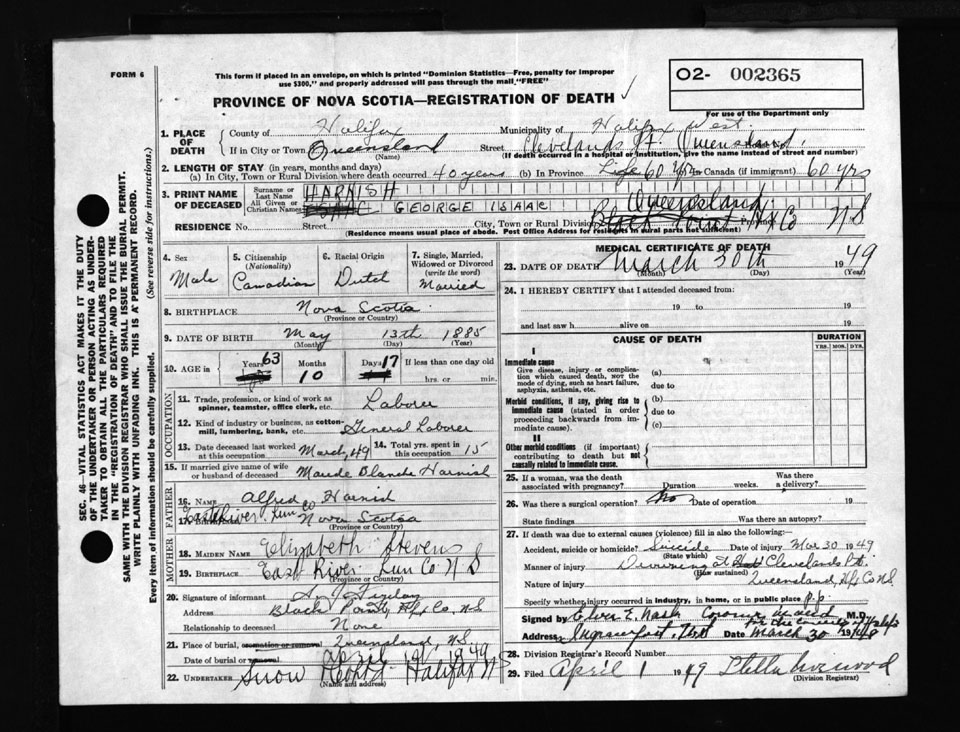 FORM 6
This form if placed in an envelope, on which is printed "Dominion Statistics—Free, penalty for improper
use $300," and properly addressed will pass through the mail "FREE"
O2- 002365
PROVINCE OF NOVA SCOTIA—REGISTRATION OF DEATH
For use of the Department only
1. PLACE OF DEATH
County of Halifax Municipality of Halifax West
If in City or Town Queensland (Name) Street Clevelands Pt. Queensland
(If death occurred in a hospital or institution, give the name instead of street and number)
2. LENGTH OF STAY (in years, months and days)
(a) In City, Town or Rural Division where death occurred 40 years (b) In Province Life 60 yrs In Canada (if immigrant) 60 yrs
3. PRINT NAME OF DECEASED
Surname or Last Name HARNISH
All Given or Christian Names ISAAC GEORGE ISAAC
Queensland
RESIDENCE No. Street City, Town or Rural Division Black Point Hx Co N S
(Residence means usual place of abode. Post Office Address for residents in rural parts not sufficient)
4. Sex
Male
5. Citizenship (Nationality)
Canadian
6. Racial Origin
Dutch
7. Single, Married, Widowed or Divorced (write the word)
Married
8. BIRTHPLACE Nova Scotia
(Province or Country)
9. DATE OF BIRTH May 13th 1885
(Month) (Day) (Year)
10. AGE in Years 63 Months 10 Days 17 If less than one day old
hrs. or min.
OCCUPATION
11. Trade, profession, or kind of work as spinner, teamster, office clerk, etc. Laborer
12. Kind of industry or business, as cotton-mill, lumbering, bank, etc. General Laborer
13. Date deceased last worked at this occupation March, 49 14. Total yrs. spent in this occupation 15
15. If married give name of wife or husband of deceased Maude Blanche Harnish
FATHER
16. Name Alfred Harnish
17. Birthplace East River Lun Co Nova Scotia
(Province or Country)
MOTHER
18. MAIDEN NAME Elizabeth Stevens
19. BIRTHPLACE East River Lun Co N S
(Province or Country)
20. Signature of informant
Address Black Point Hfx Co, N.S
Relationship to deceased None
21. Place of burial, cremation or removal Queensland, N.S
Date of burial or removal April 1949
22. UNDERTAKER Snow Halifax N S
(Name and address)
MEDICAL CERTIFICATE OF DEATH
23. DATE OF DEATH March 30th 1949
(Month) (Day) (Year)
24. I HEREBY CERTIFY that I attended deceased from:
19 to 19
and last saw h alive on 19
CAUSE OF DEATH
DURATION
YRS. MOS. DYS.
I
Immediate cause
Give disease, injury or complication which caused death, not the mode of dying, such as heart failure, asphyxia, asthenia, etc.
(a)
due to
Morbid conditions, if any, giving rise to immediate cause (stated in order proceeding backwards from immediate cause.
(b)
due to
(c)
II
Other morbid conditions (if important) contributing to death but not causally related to immediate cause.
25. If a woman, was the death associated with pregnancy? Duration weeks. Was there a delivery?
26. Was there a surgical operation? No Date of operation 19
State findings Was there an autopsy?
27. If death was due to external causes (violence) fill in also the following:—
Accident, suicide or homicide? Suicide Date of injury Mar 30 1949
(State which)
Manner of injury Drowning at Clevelands Pt.
(How sustained)
Nature of injury Queensland, Hfx Co N.S.
Specify whether injury occurred in industry, in home, or in public place p.p.
Signed by M.D.
Address Date March 30
28. Division Registrar's Record Number
29. Filed April 1 1949 Stella
(Division Registrar)
SEC. 46 VITAL STATISTICS ACT MAKES IT THE DUTY
OF THE UNDERTAKER OR PERSON ACTING AS UNDER-
TAKER TO OBTAIN ALL THE PARTICULARS REQUIRED
IN THE "REGISTRATION OF DEATH" AND TO FILE THE
SAME WITH THE DIVISION REGISTRAR WHO SHALL ISSUE THE BURIAL PERMIT.
WRITE PLAINLY WITH UNFADING INK. THIS IS A PERMANENT RECORD.
Every item of information should be carefully supplied. (See reverse side for instructions.)